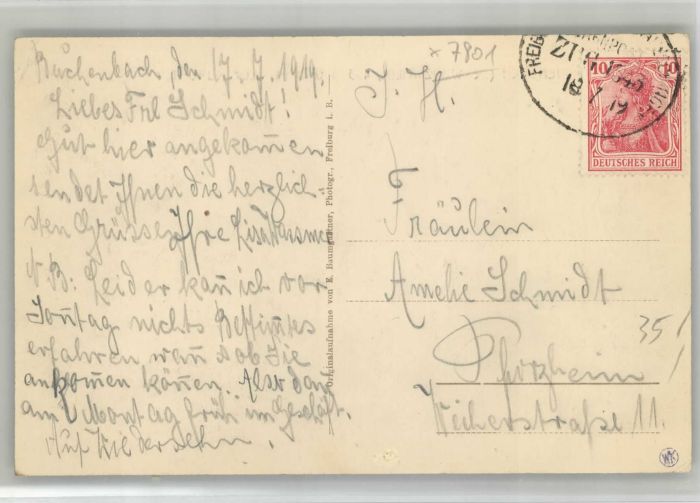 Buchenbach, den 17.7.1919.
Liebes Frl Schmidt!
Gut hier angekommen
sendet Ihnen die herzlich
sten Grüsse Ihre
NB: Leider kan ich vor
Sonntag nichts Bestimtes
erfahren wan & ob Sie
ankomen können. Also dan
am Montag früh im Geschäft.
Auf Wiedersehn.
Originalaufnahme von E. Baumgartner, Photogr., Freiburg i. B.
× 7901
I. H.
Fräulein
Amelie Schmidt
Pforzheim
Weiherstraße 11.
35
FREIB
ZUG 1545
18 7 19
10 10
DEUTSCHES REICH